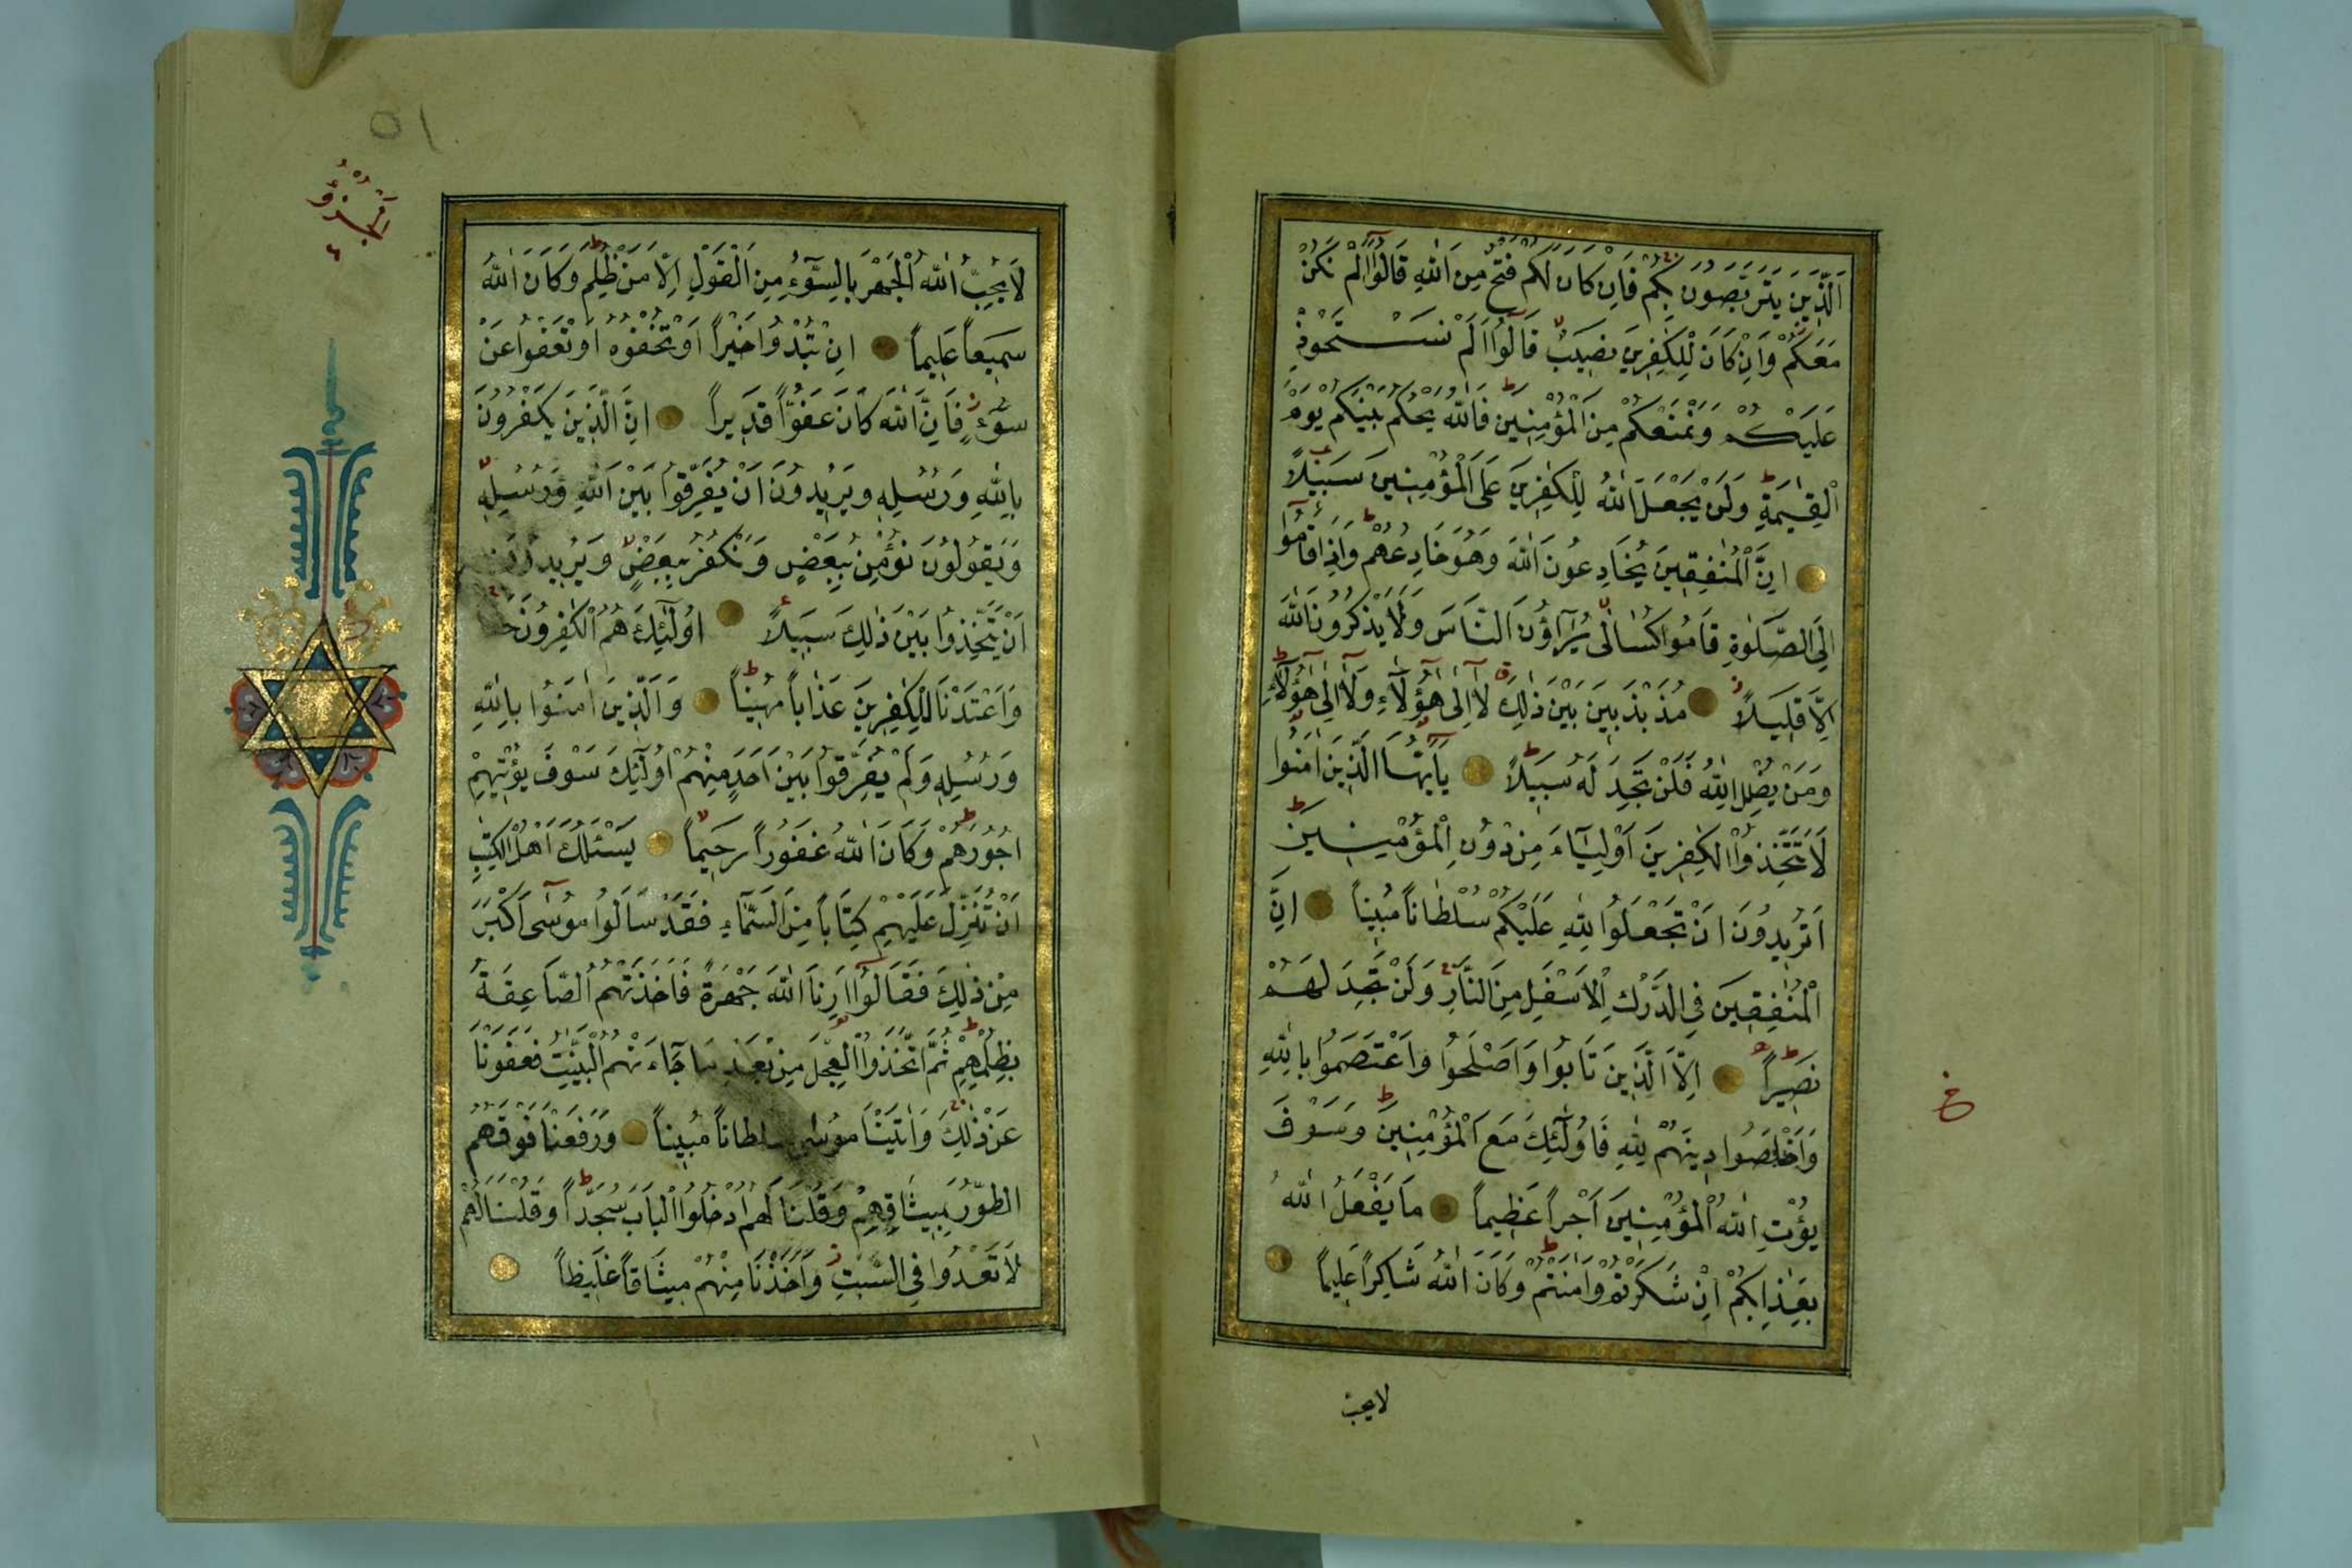 اَلَّذِينَ يَتَرَبَّصُونَ بِكُمْ فَاِنْ كَانَ لَكُمْ فَتْحٌ مِنَ اللّٰهِ قَالُٓوا اَلَمْ نَكُنْ
مَعَكُمْ وَاِنْ كَانَ لِلْكٰفِرِينَ نَصِيبٌ قَالُٓوا اَلَمْ نَسْتَحْوِذْ
عَلَيْكُمْ وَنَمْنَعْكُمْ مِنَ الْمُؤْمِنِينَ فَاللّٰهُ يَحْكُمُ بَيْنَكُمْ يَوْمَ
الْقِيٰمَةِ وَلَنْ يَجْعَلَ اللّٰهُ لِلْكٰفِرِينَ عَلَى الْمُؤْمِنِينَ سَبِيلاً
اِنَّ الْمُنٰفِقِينَ يُخَادِعُونَ اللّٰهَ وَهُوَ خَادِعُهُمْ وَاِذَا قَامُٓوا
اِلَى الصَّلٰوةِ قَامُوا كُسَالٰى يُرَآؤُنَ النَّاسَ وَلَا يَذْكُرُونَ اللّٰهَ
اِلَّا قَلِيلاً مُذَبْذَبِينَ بَيْنَ ذٰلِكَ لَٓا اِلٰى هٰٓؤُلَٓاءِ وَلَٓا اِلٰى هٰٓؤُلَٓاءِ
وَمَنْ يُضْلِلِ اللّٰهُ فَلَنْ تَجِدَ لَهُ سَبِيلاً يَٓا اَيُّهَا الَّذِينَ اٰمَنُوا
لَا تَتَّخِذُوا الْكٰفِرِينَ اَوْلِيَٓاءَ مِنْ دُونِ الْمُؤْمِنِينَ
اَتُرِيدُونَ اَنْ تَجْعَلُوا لِلّٰهِ عَلَيْكُمْ سُلْطَاناً مُبِيناً اِنَّ
الْمُنٰفِقِينَ فِي الدَّرْكِ الْاَسْفَلِ مِنَ النَّارِ وَلَنْ تَجِدَ لَهُمْ
نَصِيراً اِلَّا الَّذِينَ تَابُوا وَاَصْلَحُوا وَاعْتَصَمُوا بِاللّٰهِ
وَاَخْلَصُوا دِينَهُمْ لِلّٰهِ فَاُولٰٓئِكَ مَعَ الْمُؤْمِنِينَ وَسَوْفَ
يُؤْتِ اللّٰهُ الْمُؤْمِنِينَ اَجْراً عَظِيماً مَا يَفْعَلُ اللّٰهُ
بِعَذَابِكُمْ اِنْ شَكَرْتُمْ وَاٰمَنْتُمْ وَكَانَ اللّٰهُ شَاكِراً عَلِيماً
لا يحب
خ
٥١
اَلْجُزْؤُ
لَا يُحِبُّ اللّٰهُ الْجَهْرَ بِالسُّٓوءِ مِنَ الْقَوْلِ اِلَّا مَنْ ظُلِمَ وَكَانَ اللّٰهُ
سَمِيعاً عَلِيماً اِنْ تُبْدُوا خَيْراً اَوْ تُخْفُوهُ اَوْ تَعْفُوا عَنْ
سُٓوءٍ فَاِنَّ اللّٰهَ كَانَ عَفُوّاً قَدِيراً اِنَّ الَّذِينَ يَكْفُرُونَ
بِاللّٰهِ وَرُسُلِهِ وَيُرِيدُونَ اَنْ يُفَرِّقُوا بَيْنَ اللّٰهِ وَرُسُلِهِ
وَيَقُولُونَ نُؤْمِنُ بِبَعْضٍ وَنَكْفُرُ بِبَعْضٍ وَيُرِيدُونَ
اَنْ يَتَّخِذُوا بَيْنَ ذٰلِكَ سَبِيلاً اُولٰٓئِكَ هُمُ الْكٰفِرُونَ
وَاَعْتَدْنَا لِلْكٰفِرِينَ عَذَاباً مُهِيناً وَالَّذِينَ اٰمَنُوا بِاللّٰهِ
وَرُسُلِهِ وَلَمْ يُفَرِّقُوا بَيْنَ اَحَدٍ مِنْهُمْ اُولٰٓئِكَ سَوْفَ يُؤْتِيهِمْ
اُجُورَهُمْ وَكَانَ اللّٰهُ غَفُوراً رَحِيماً يَسْئَلُكَ اَهْلُ الْكِتٰبِ
اَنْ تُنَزِّلَ عَلَيْهِمْ كِتَاباً مِنَ السَّمَٓاءِ فَقَدْ سَاَلُوا مُوسٰٓى اَكْبَرَ
مِنْ ذٰلِكَ فَقَالُٓوا اَرِنَا اللّٰهَ جَهْرَةً فَاَخَذَتْهُمُ الصَّاعِقَةُ
بِظُلْمِهِمْ ثُمَّ اتَّخَذُوا الْعِجْلَ مِنْ بَعْدِ مَا جَٓاءَتْهُمُ الْبَيِّنٰتُ فَعَفَوْنَا
عَنْ ذٰلِكَ وَاٰتَيْنَا مُوسٰى سُلْطَاناً مُبِيناً وَرَفَعْنَا فَوْقَهُمُ
الطُّورَ بِمِيثَاقِهِمْ وَقُلْنَا لَهُمُ ادْخُلُوا الْبَابَ سُجَّداً وَقُلْنَا لَهُمْ
لَا تَعْدُوا فِي السَّبْتِ وَاَخَذْنَا مِنْهُمْ مِيثَاقاً غَلِيظاً